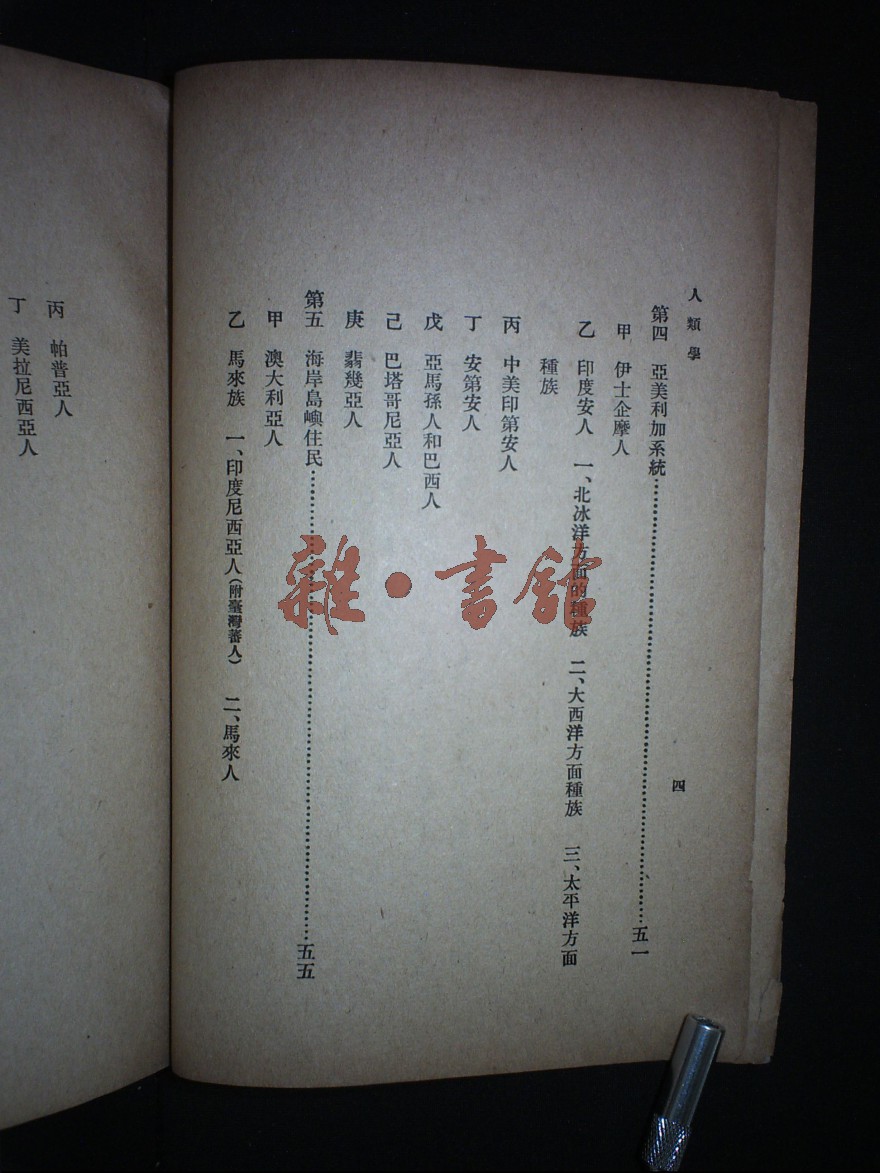 人類學
四
第四　亞美利加系統……………………五一
甲　伊士企摩人
乙　印度安人　一、北冰洋方面的種族　二、大西洋方面種族　三、太平洋方面
種族
丙　中美印第安人
丁　安第安人
戊　亞馬孫人和巴西人
己　巴塔哥尼亞人
庚　翡幾亞人
第五　海岸島嶼住民……………………五五
甲　澳大利亞人
乙　馬來族　一、印度尼西亞人（附臺灣蕃人）　二、馬來人
丙　帕普亞人
丁　美拉尼西亞人
雜·書館